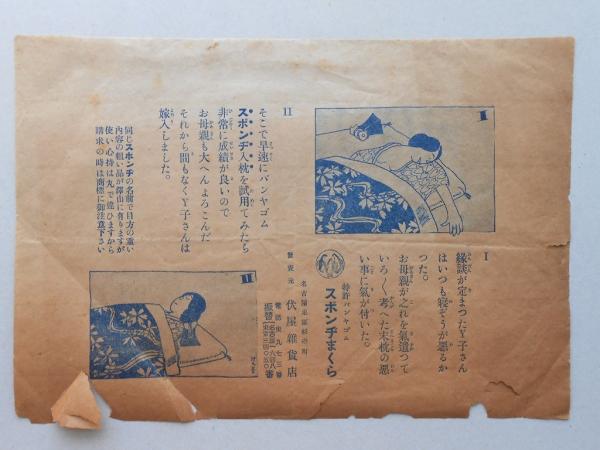 I
I
縁談が定まつたY子さん
はいつも寝ぞうが悪るか
つた。
お母親が之れを氣遣つて
いろ〱考へた末枕の悪
い事に氣が付いた。
II
そこで早速にパンヤゴム
スポンヂ入枕を試用してみたら
非常に成績が良いので
お母親も大へんよろこんだ
それから間もなくY子さんは
嫁入しました。
同じスポンヂの名前で目方の重い
内容の粗い品が澤山に有りますが
使い心持は丸で違ひますから
請求の時は商標に御注意下さい
特許パンヤゴム
スポンヂまくら
發賣元
伏屋雜貨店
II